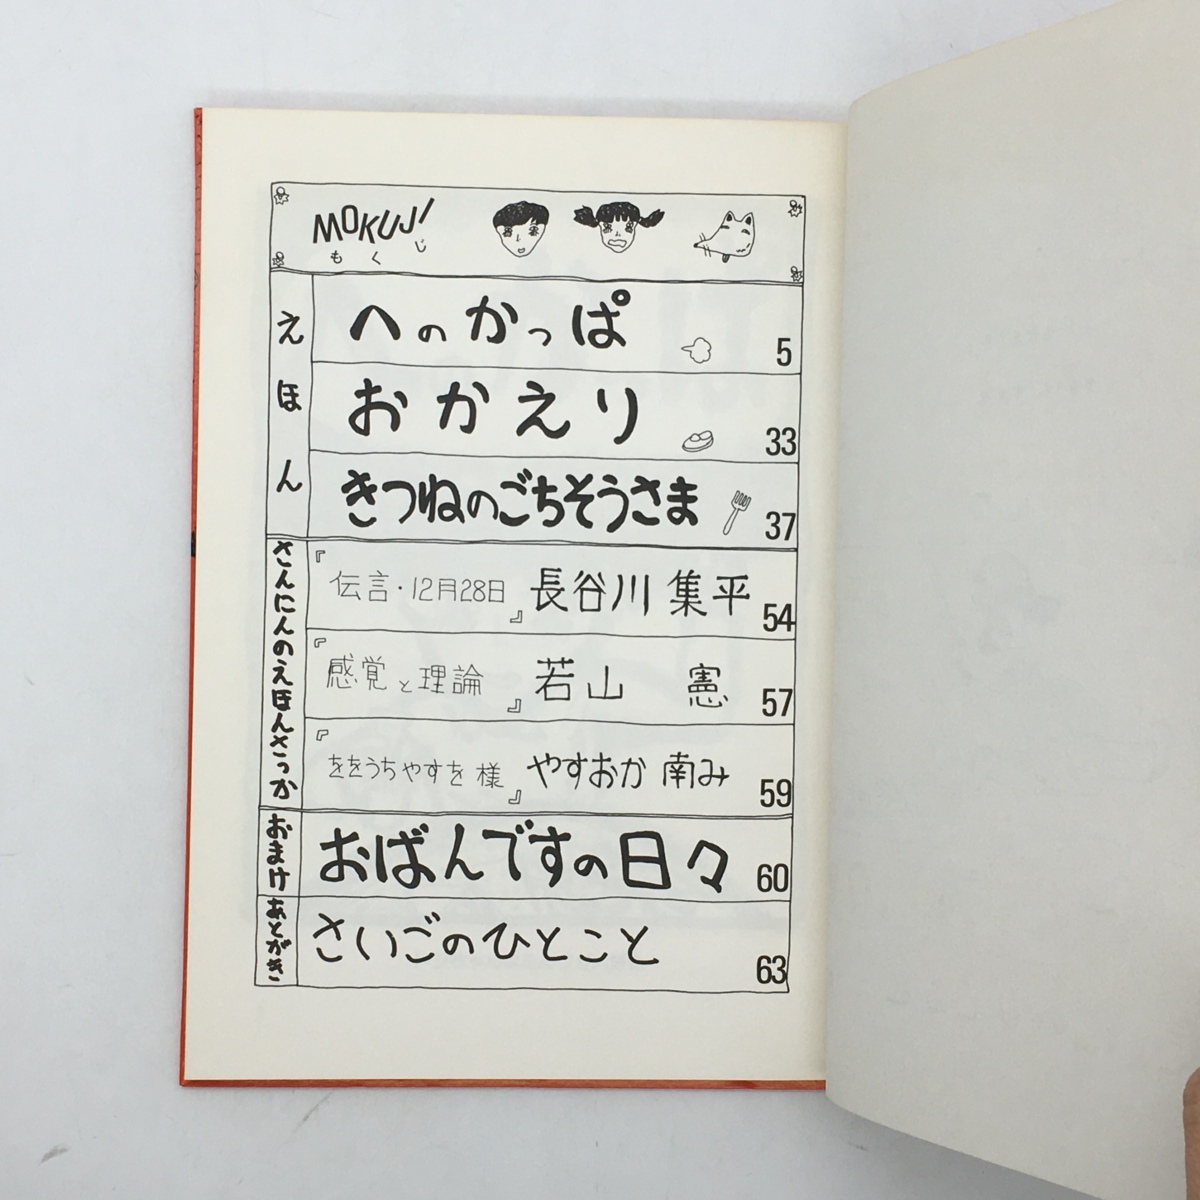 MOKUJI
もくじ
えほん
へのかっぱ 5
おかえり 33
きつねのごちそうさま 37
さんにんのえほんさっか
『伝言・12月28日』 長谷川 集平 54
『感覚と理論』 若山 憲 57
『ををうちやすを 様』 やすおか 南み 59
おまけ
おばんですの日々 60
あとがき
さいごのひとこと 63